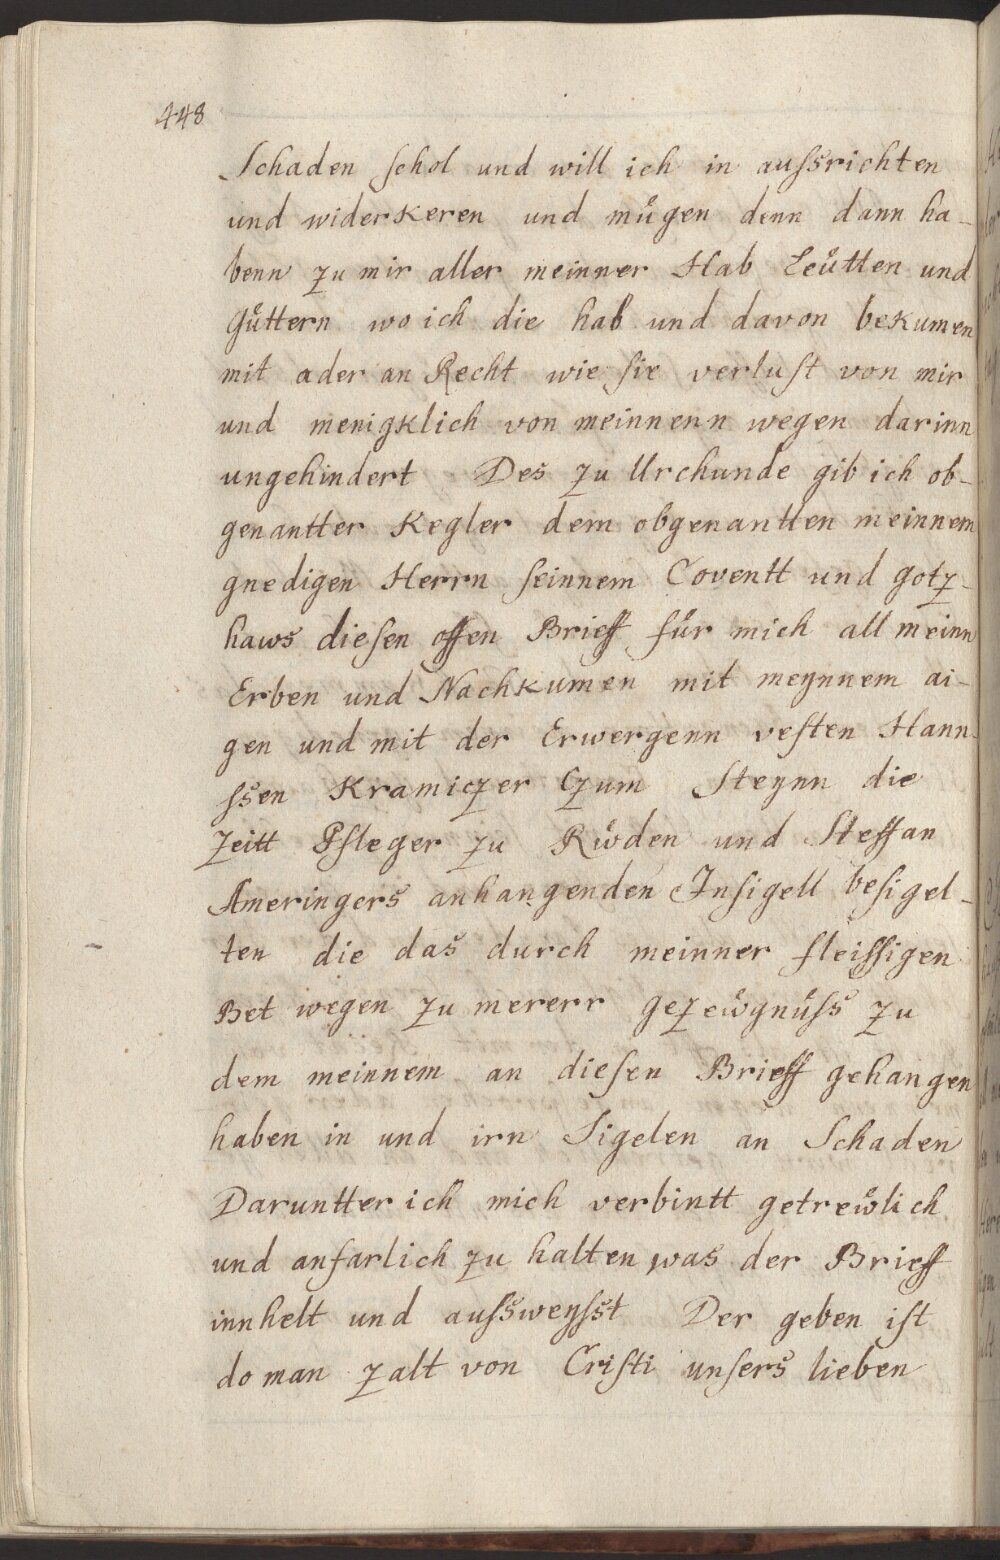 448
Schaden schol und will ich in aussrichten
und widerkeren und mügen denn dann ha-
benn zu mir aller meinner Hab Leütten und
Güttern wo ich die hab und davon bekumen
mit ader an Recht wie sie verlust von mir
und menigklich von meinnenn wegen darinn
ungehindert Des zu Urchunde gib ich ob-
genantter Kegler dem obgenantten meinnem
gnedigen Herrn seinnem Coventt und gotz-
haws diesen offen Brieff für mich all meinn
Erben und Nachkumen mit meynnem ai-
gen und mit der Erwergenn vesten Hann-
ssen Kramiczer Czum Steynn die
Zeitt Pfleger zu Rẘden und Steffan
Ameringers anhangenden Insigell besigel-
ten die das durch meinner fleissigen
Bet wegen zu mererr gezeẘgnüss zu
dem meinnem an diesen Brieff gehangen
haben in und irn Sigelen an Schaden
Daruntter ich mich verbintt getreẘlich
und anfarlich zu halten was der Brieff
innhelt und aussweysst Der geben ist
do man zalt von Cristi unsers lieben